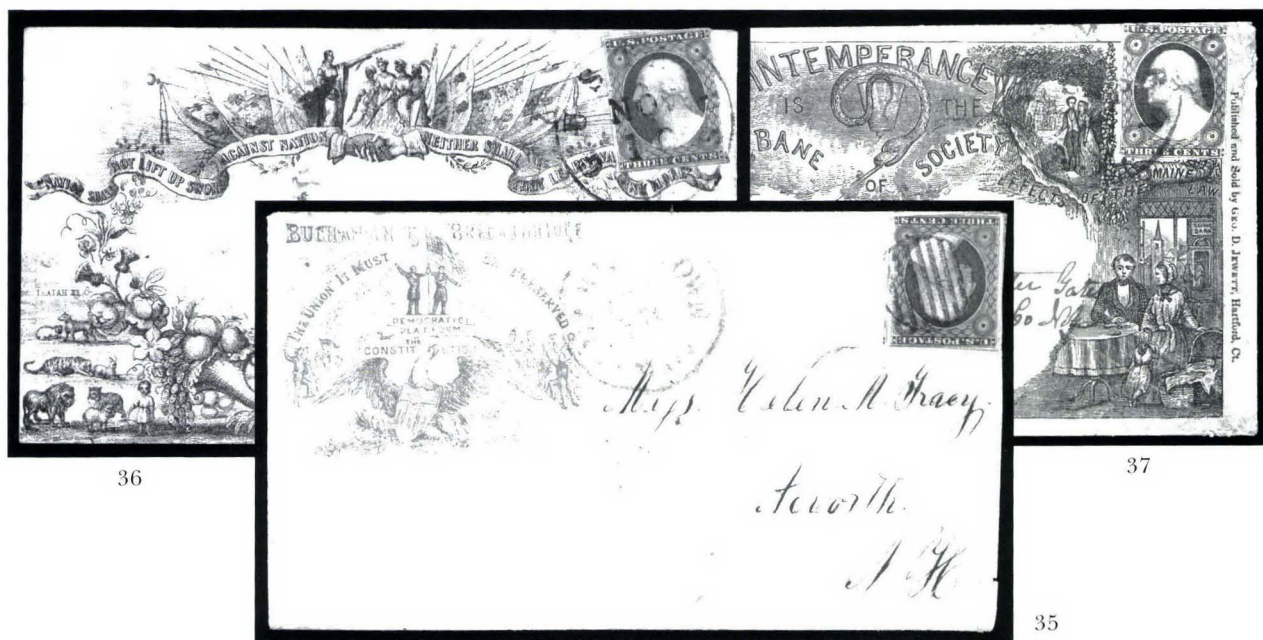 NATION SHALL NOT LIFT UP SWORD AGAINST NATION NEITHER SHALL THEY LEARN WAR ANY MORE
U.S. POSTAGE
THREE CENTS
ISAIAH
36
INTEMPERANCE
IS THE
BANE OF SOCIETY
EFFECTS OF THE MAINE LAW
U.S. POSTAGE
THREE CENTS
Published and Sold by GEO. D. JEWETT, Hartford, Ct.
37
BUCHANAN & BRECKINRIDGE
THE UNION IT MUST BE PRESERVED
DEMOCRATIC
PLATFORM
THE
CONSTITUTION
THREE CENTS
U.S. POSTAGE
Miss. Helen M. Tracy.
Acworth.
N H
35